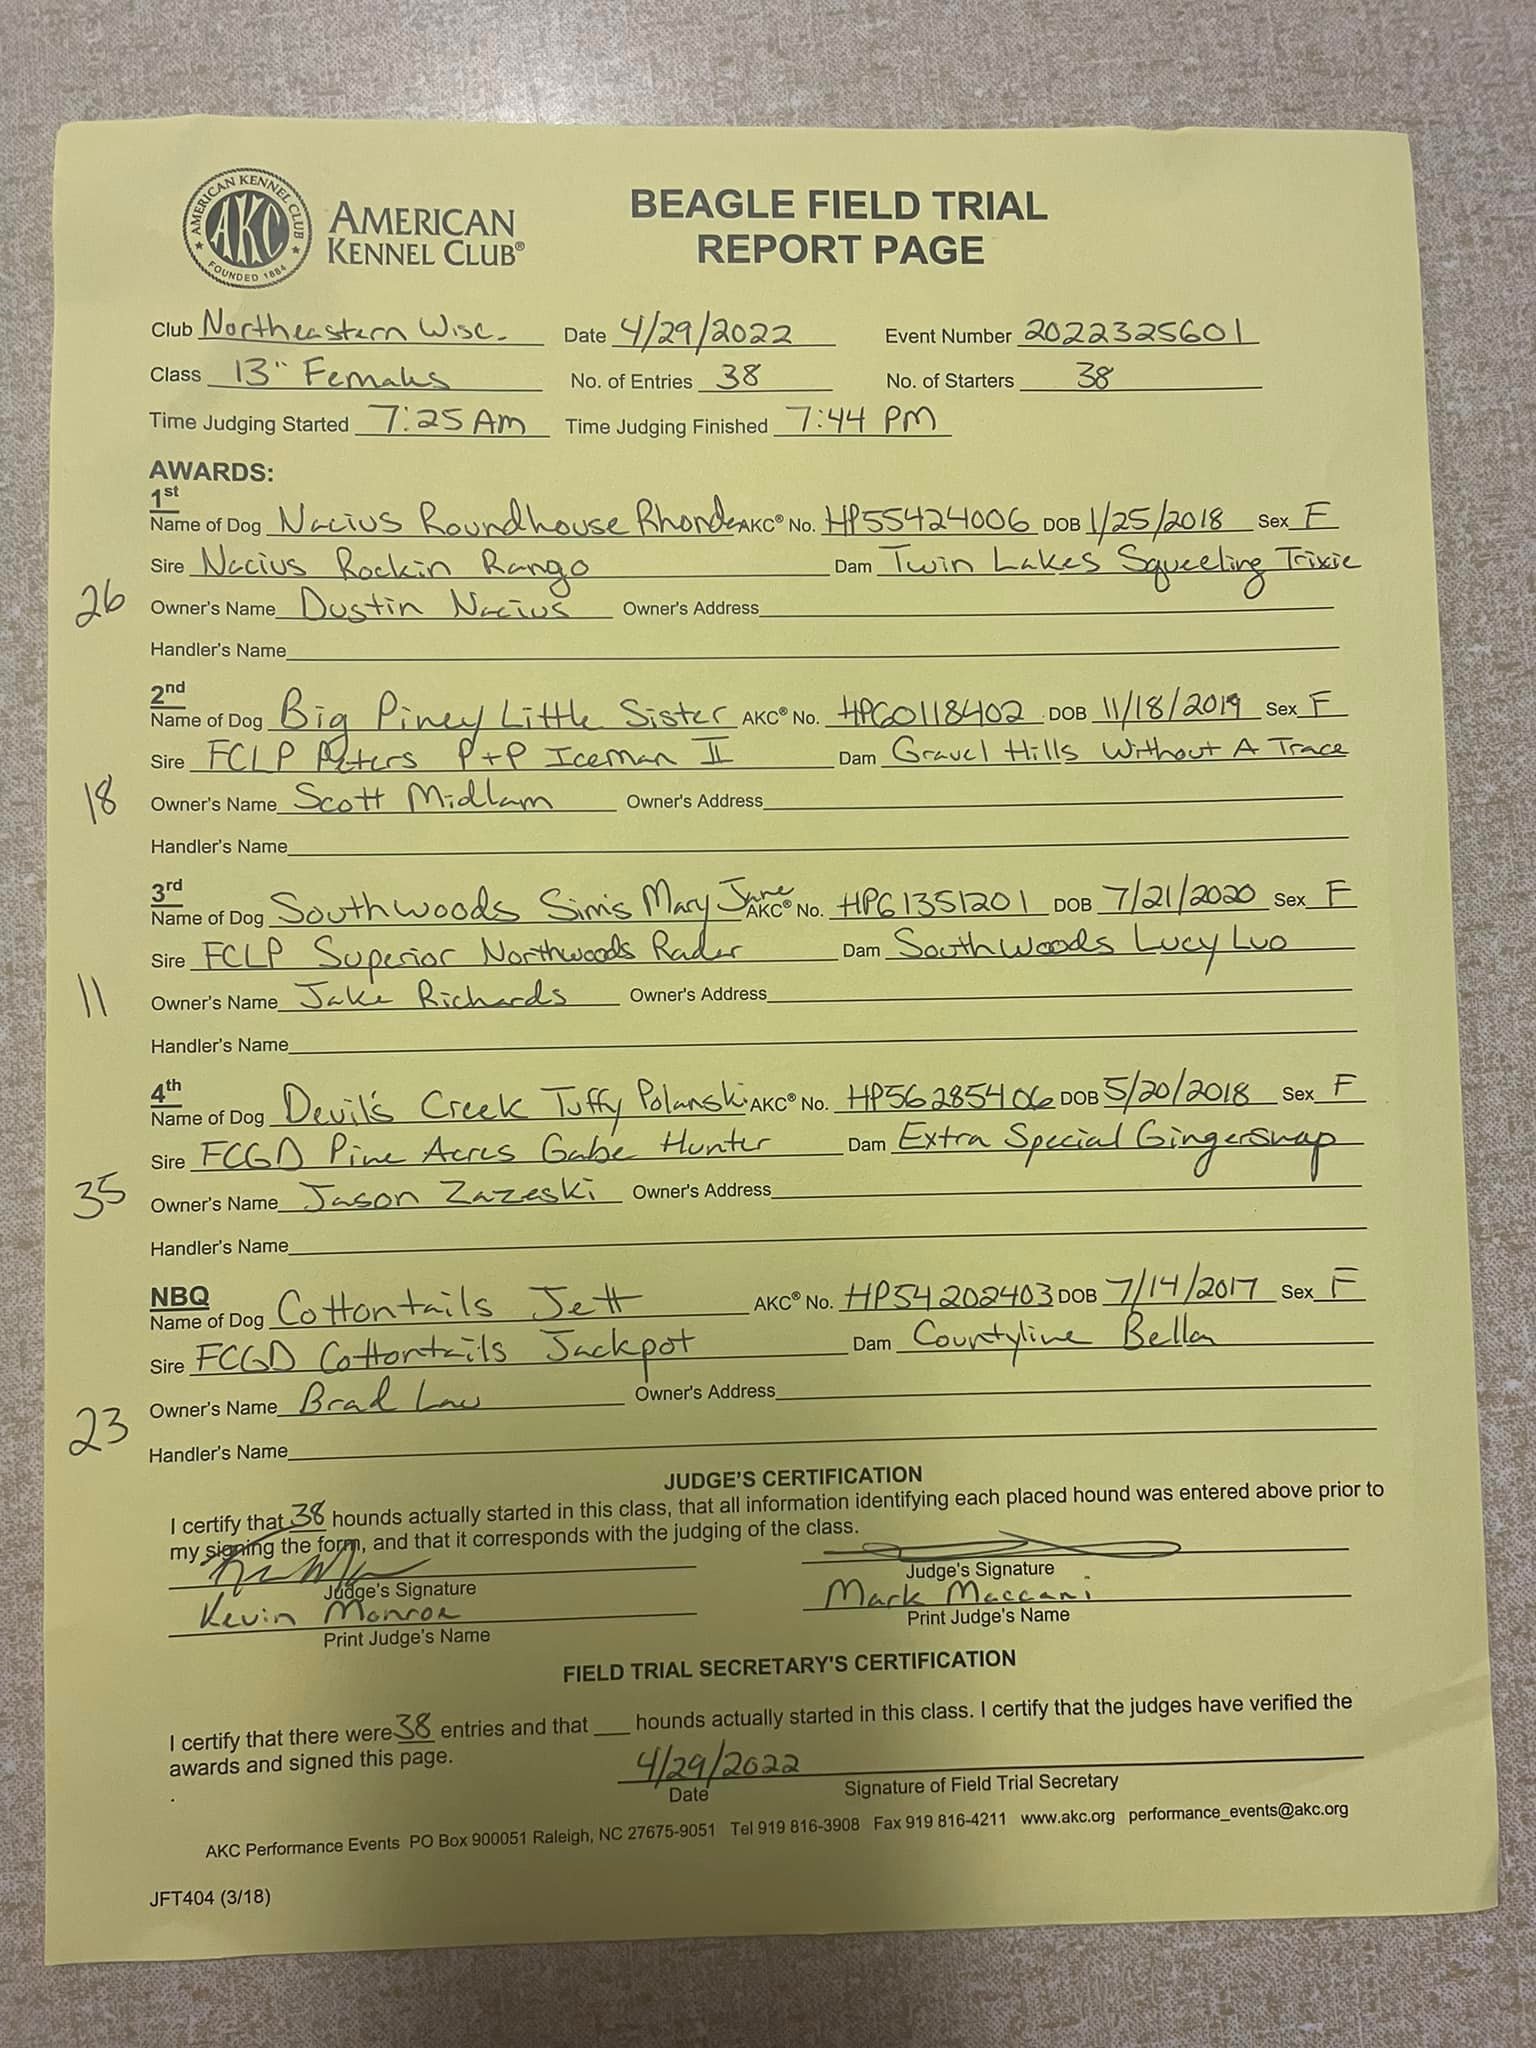 AMERICAN KENNEL CLUB
AKC
FOUNDED 1884
AMERICAN
KENNEL CLUB®
BEAGLE FIELD TRIAL
REPORT PAGE
Club Northeastern Wisc. Date 4/29/2022 Event Number 2022325601
Class 13" Females No. of Entries 38 No. of Starters 38
Time Judging Started 7:25 AM Time Judging Finished 7:44 PM
AWARDS:
1st
Name of Dog Nacius Roundhouse Rhonda AKC® No. HP55424006 DOB 1/25/2018 Sex F
Sire Nacius Rockin Rango Dam Twin Lakes Squeeling Trixie
26 Owner's Name Dustin Nacius Owner's Address
Handler's Name
2nd
Name of Dog Big Piney Little Sister AKC® No. HP60118402 DOB 11/18/2019 Sex F
Sire FCLP Peters P+P Iceman II Dam Gravel Hills Without A Trace
18 Owner's Name Scott Midlam Owner's Address
Handler's Name
3rd
Name of Dog Southwoods Sims Mary Jane AKC® No. HP61351201 DOB 7/21/2020 Sex F
Sire FCLP Superior Northwoods Rader Dam Southwoods Lucy Luo
11 Owner's Name Jake Richards Owner's Address
Handler's Name
4th
Name of Dog Devil's Creek Tuffy Polanski AKC® No. HP56285406 DOB 5/20/2018 Sex F
Sire FCGD Pine Acres Gabe Hunter Dam Extra Special Gingersnap
35 Owner's Name Jason Zazeski Owner's Address
Handler's Name
NBQ
Name of Dog Cottontails Jett AKC® No. HP54202403 DOB 7/14/2017 Sex F
Sire FCGD Cottontails Jackpot Dam Countyline Bella
23 Owner's Name Brad Law Owner's Address
Handler's Name
JUDGE'S CERTIFICATION
I certify that 38 hounds actually started in this class, that all information identifying each placed hound was entered above prior to
my signing the form, and that it corresponds with the judging of the class.
Judge's Signature Judge's Signature
Kevin Monroe Mark Maccani
Print Judge's Name Print Judge's Name
FIELD TRIAL SECRETARY'S CERTIFICATION
I certify that there were 38 entries and that ___ hounds actually started in this class. I certify that the judges have verified the
awards and signed this page.
4/29/2022
Date Signature of Field Trial Secretary
AKC Performance Events PO Box 900051 Raleigh, NC 27675-9051 Tel 919 816-3908 Fax 919 816-4211 www.akc.org performance_events@akc.org
JFT404 (3/18)